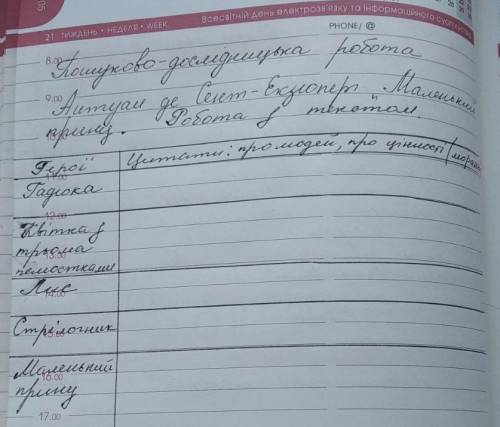 21 ТИЖДЕНЬ • НЕДЕЛЯ • WEEK
Всесвітній день електрозв'язку та інформаційного суспільства
PHONE/ @
8.00 Пошуково-дослідницька робота
9.00 Антуан де Сент-Екзюпері „Маленький
принц". Робота з текстом.
Герої Цитати: про людей, про цінності (моральні
11.00
Гадюка
12.00
Квітка з
трьома
13.00
пелюстками
Лис
14.00
Стрілочник
15.00
Маленький
16.00
принц
17.00